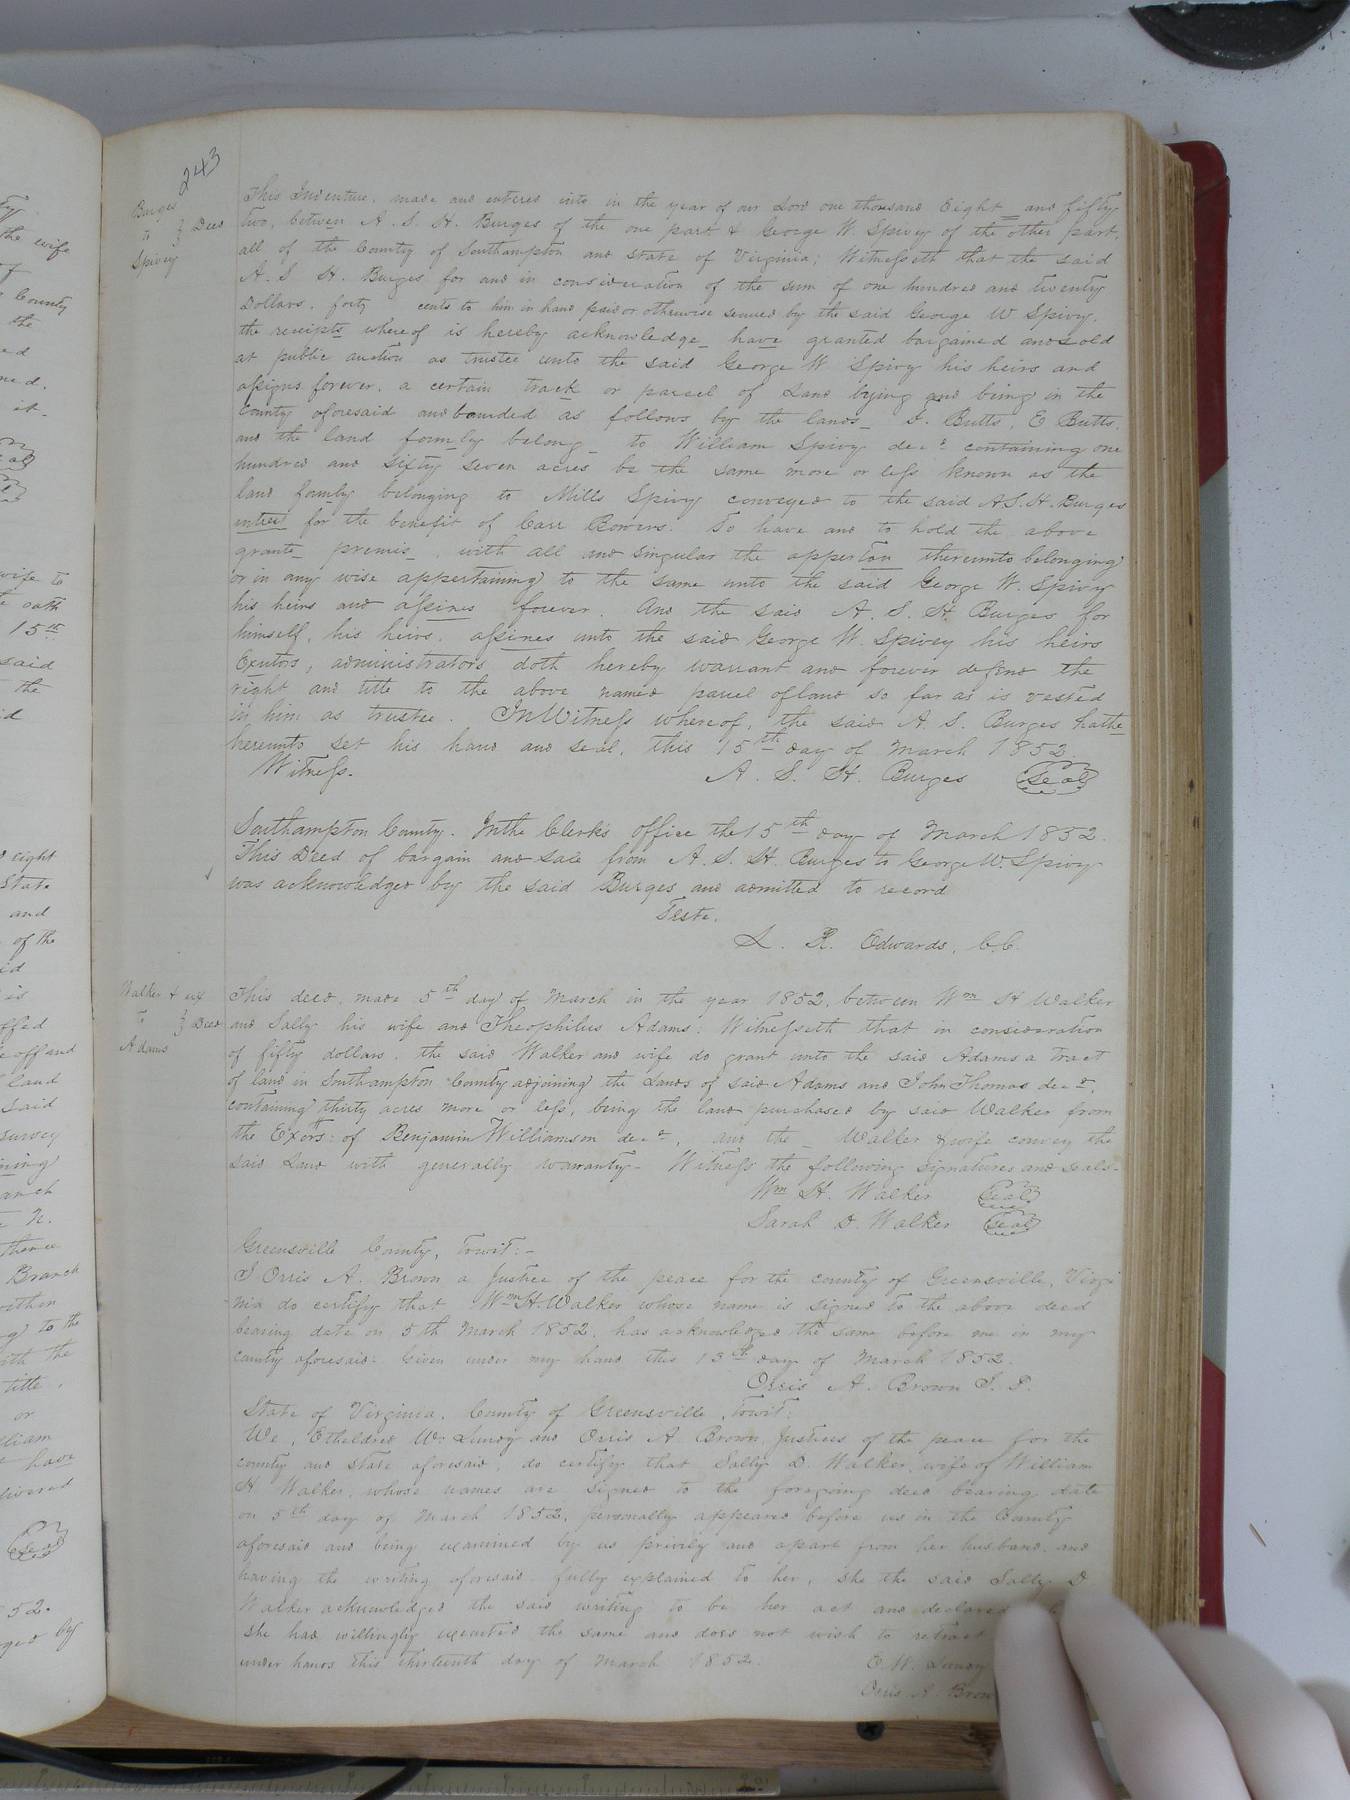 243
Burges
to } Deed
Spivey
This Indenture, made and entered into in the year of our Lord one thousand Eight_ and fifty
two, between A. S. H. Burges of the one part & George W. Spivey of the other part,
all of the County of Southampton and State of Virginia; Witnesseth that the said
A. S H. Burges for and in consideration of the sum of one hundred and twenty
Dollars, forty cents to him in hand paid or otherwise secured by the said George W Spivy,
the receipts whereof is hereby acknowledge_ have granted bargained and sold
at public auction as trustee unto the said George W Spivy his heirs and
assigns forever, a certain track or parcel of Land lying and being in the
County aforesaid and bounded as follows by the lands_ J. Butts, E Butts,
and the land formly belong_ to William Spivy decd containing one
hundred and sixty seven acres be the same more or less known as the
land formly belonging to Mills Spivy conveyed to the said A.S.H. Burges
intrest for the benefit of Carr Bowers. To have and to hold the above
grante_ premis_, with all and singular the apperton thereunto belonging
or in any wise appertaining to the same unto the said George W. Spivy
his heirs and assines forever. And the said A. S. H. Burges for
himself, his heirs, assines unto the said George W. Spivey his heirs
Exutors, administrators doth hereby warrant and forever defend the
right and title to the above named parcel of land so far as is vested
in him as trustee. In Witness whereof, the said A. S. Burges hathe
hereunto set his hand and seal, this 15th day of March 1852.
Witness.
A. S. H. Burges (Seal)
Southampton County. In the Clerk's office the 15th day of March 1852.
This Deed of bargain and sale from A. S. H. Burges to George W. Spivy
was acknowledged by the said Burges and admitted to record
Teste.
L. R. Edwards, C.C.
Walker & ux
to } Deed
Adams
This deed, made 5th day of March in the year 1852, between Wm H Walker
and Sally his wife and Theophilus Adams: Witnesseth that in consideration
of fifty dollars, the said Walker and wife do grant unto the said Adams a tract
of land in Southampton County adjoining the Lands of said Adams and John Thomas decd,
containing thirty acres more or less, being the land purchased by said Walker from
the Exors: of Benjamin Williamson decd, and the _ Walker & wife convey the
said Land with generally warranty- Witness the following signatures and seals-
Wm H. Walker (Seal)
Sarah D. Walker (Seal)
Greensville County, towit:-
I Orris A. Brown a Justice of the peace for the county of Greensville, Virgi
nia do certify that Wm H. Walker whose name is signed to the above deed
bearing date on 5th March 1852, has acknowledged the same before me in my
county aforesaid: Given under my hand this 13th day of March 1852.
Orris A. Brown J. P.
State of Virginia, County of Greensville, towit:
We, Etheldred W. Lundy and Orris A Brown, Justices of the peace for the
county and state aforesaid, do certify that Sally D. Walker, wife of William
H Walker, whose names are signed to the foregoing deed bearing date
on 5th day of March 1852, personally appeared before us in the County
aforesaid and being examined by us privily and apart from her husband, and
having the writing aforesaid fully explained to her, she the said Sally D
Walker acknowledged the said writing to be her act and declared
she had willingly executed the same and does not wish to retract
under hands this thirteenth day of March 1852.
E. W. Lundy
Orris A. Brow